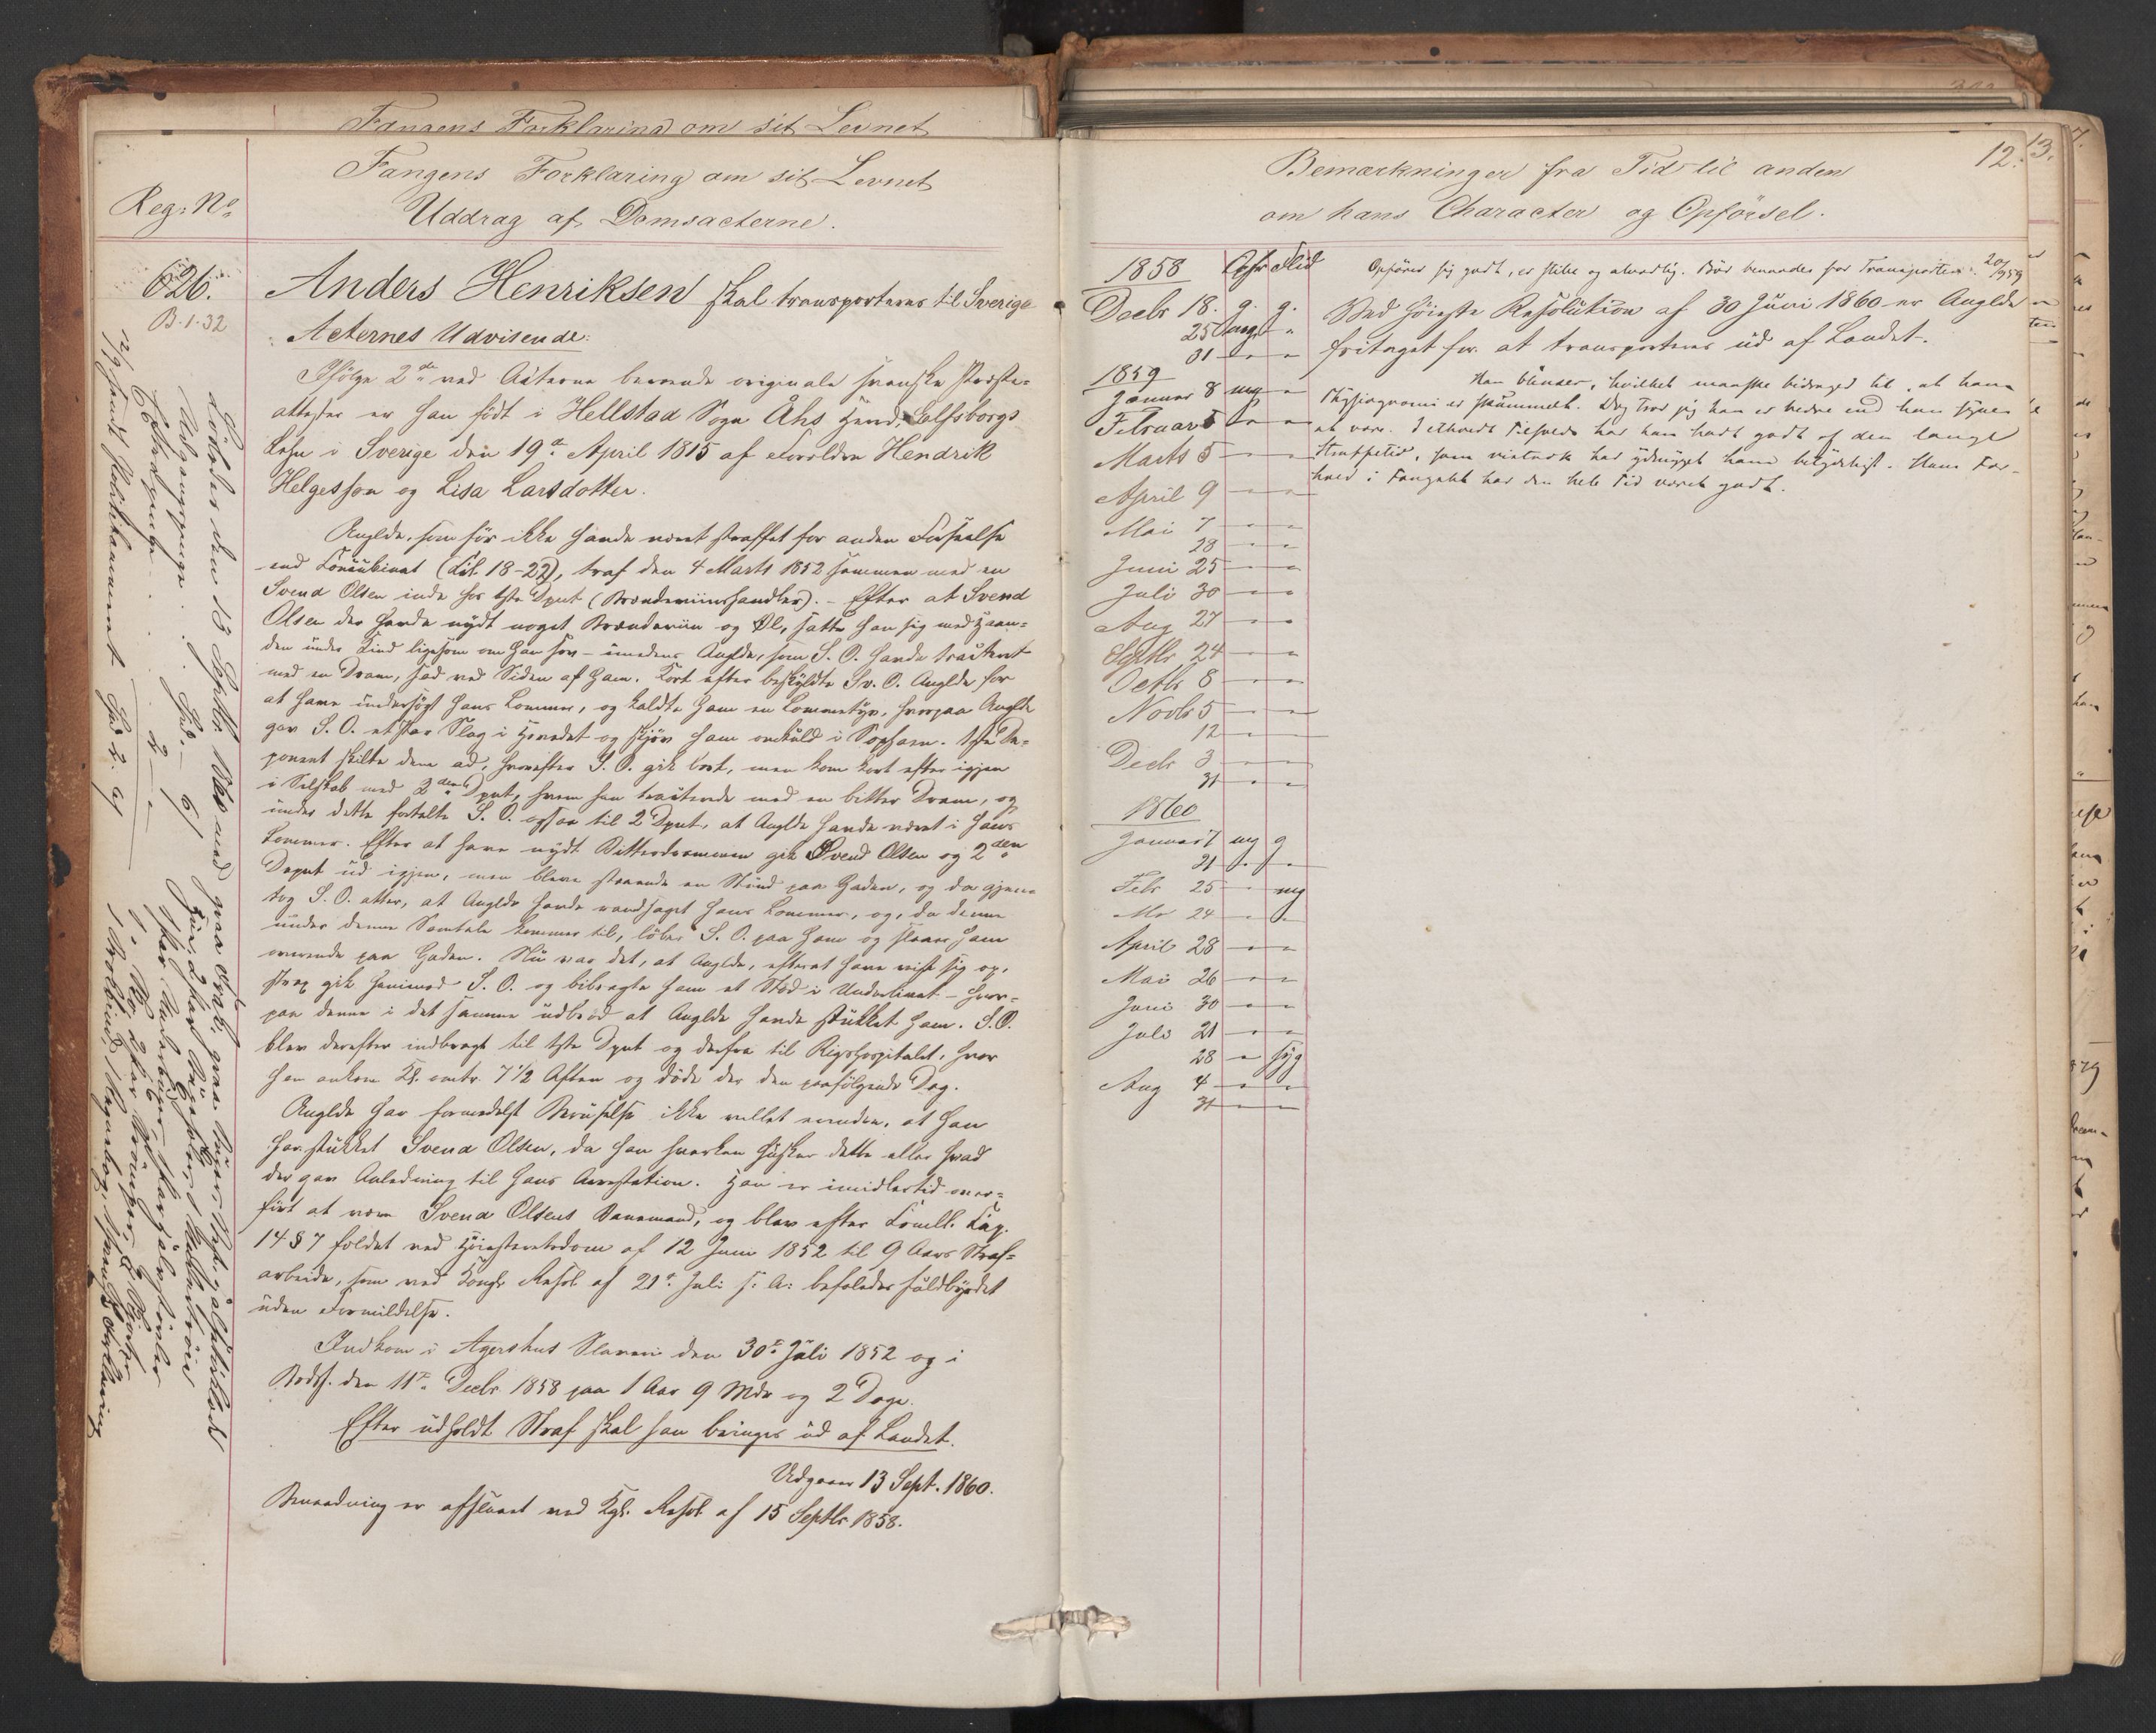 Fangens Forklaring om sit Levnet
Fangens Forklaring om sit Levnet
Uddrag af Domsacterne.
Reg: No
626.
B. 1. 32
Anders Henriksen skal transporteres til Sverige
Acternes Udvisende:
Ifølge 2de ved Acterne beroende originale svenske Præste-
attester er han født i Hellstad Sogn Åhs Hered, Elfsborgs
Lehn i Sverige den 19de April 1815 af Forældre Hendrik
Helgesson og Lisa Larsdotter.
Anglde, som før ikke havde været straffet for anden Forseelse
end Concubinat (Lit. 18-22), traf den 4 Marts 1852 sammen med en
Svend Olsen inde hos 1ste Dput (Brændeviinshandler). - Efter at Svend
Olsen der havde nydt noget Brændeviin og Øl, satte han sig med Haan-
den under Kind ligesom om han sov - imedens Anglde, som S. O. havde tracteret
med en Dram, sad ved Siden af ham. Kort efter beskyldte Sv. O. Anglde for
at have undersøgt hans Lommer, og kaldte ham en Lommetyv, hvorpaa Anglde
gav S. O. et Slag i Hovedet og skjøv ham omkuld i Sophaen. 1ste De-
ponent skilte dem ad, hvorefter S. O. gik bort, men kom kort efter igjen
i Selskab med 2den Dput, hvem han tracterede med en bitter Dram, og
under dette fortalte S. O. ogsaa til 2 Dput, at Anglde havde været i hans
Lommer. Efter at have nydt Bitterdrammen gik Svend Olsen og 2den
Deput ud igjen, men bleve staaende en Stund paa Gaden, og da gjen-
tog S. O. atter, at Anglde havde randsaget hans Lommer, og, da denne
under denne Samtale kommer til, løber S. O. paa ham og slaaer ham
overende paa Gaden. Nu var det, at Anglde, efterat have reist sig op,
strax gik henimod S. O. og bibragte ham et Stød i Underlivet - hvor-
paa denne i det samme udbrød at Anglde havde stukket ham. S. O.
blev derefter indbragt til 1ste Dput og derfra til Rigshospitalet, hvor
han ankom Kl. omtr. 7 1/2 Aften og døde der den paafølgende Dag.
Anglde har formedelst Beruselse ikke villet erindre, at han
har stukket Svend Olsen, da han hverken husker dette eller hvad
der gav Anledning til hans Arrestation. Han er imidlertid over-
ført at være Svend Olsens Banemand, og blev efter Crmll. Cap.
14 § 7 fældet ved Høiesteretsdom af 12 Juni 1852 til 9 Aars Straf-
arbeide, som ved Kongl. Resol. af 21de Juli s: A: befaledes fuldbyrdet
uden Formildelse.
Indkom i Agershus Slaveri den 30te Juli 1852 og i
Bodsf. den 11te Decbr 1858 paa 1 Aar 9 Mdr og 2 Dage.
Efter udholdt Straf skal han bringes ud af Landet.
Udgaaer 13 Sept. 1860.
Benaadning er afslaaet ved Kgl. Resol. af 15 Septbr 1858.
Løslades den 13 Septbr 1860 med
12.
13.
Bemærkninger fra Tid til anden
om hans Character og Opførsel.
1858 Opf. Flid
Decbr 18. g. g.
25 mg "
31 " "
1859
Januar 8 mg "
Februar 5 " "
Marts 5 " "
April 9 " "
Mai 7 " "
28 " "
Juni 25 " "
Juli 30 " "
Aug 27 " "
Septbr 24 " "
Octbr 8 " "
Novbr 5 " "
12 " "
Decbr 3 " "
31 " "
1860
Januar 7 mg g
21 " "
Febr 25 " mg
Mr 24 " "
April 28 " "
Mai 26 " "
Juni 30 " "
Juli 21 " "
28 " syg
Aug 4 " "
31 " "
Opfører sig godt, er stille og alvorlig. Bør benaades for Transporten. 20/9 59
Ved høieste Resolution af 30 Juni 1860 er Anglde
fritaget for at transporteres ud af Landet.
Han blunder, hvilket maaske bidraged til, at hans
Physiognomi er skummelt. Dog tror jeg han er bedre end han synes
at være. I ethvert Tilfælde har han havt godt af den lange
Straffetid, som vistnok har ydmyget ham betydeligt. Hans For-
hold i Fængslet har den hele Tid været godt.